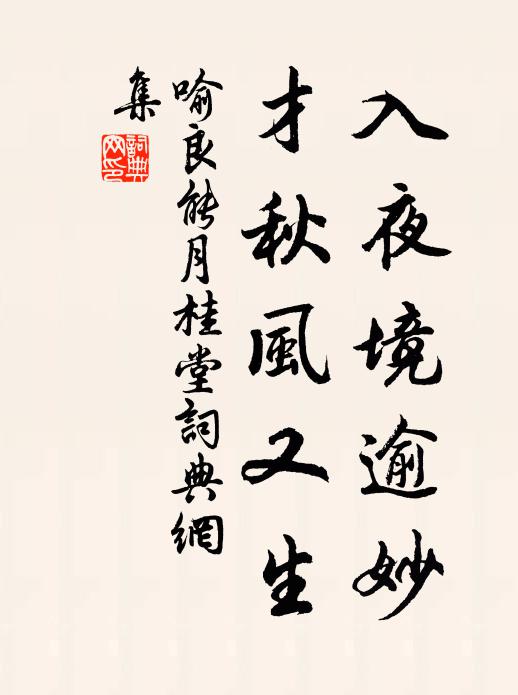 入夜境逾妙
才秋風又生
喻良能月桂堂詞典網
集
詞典
網印